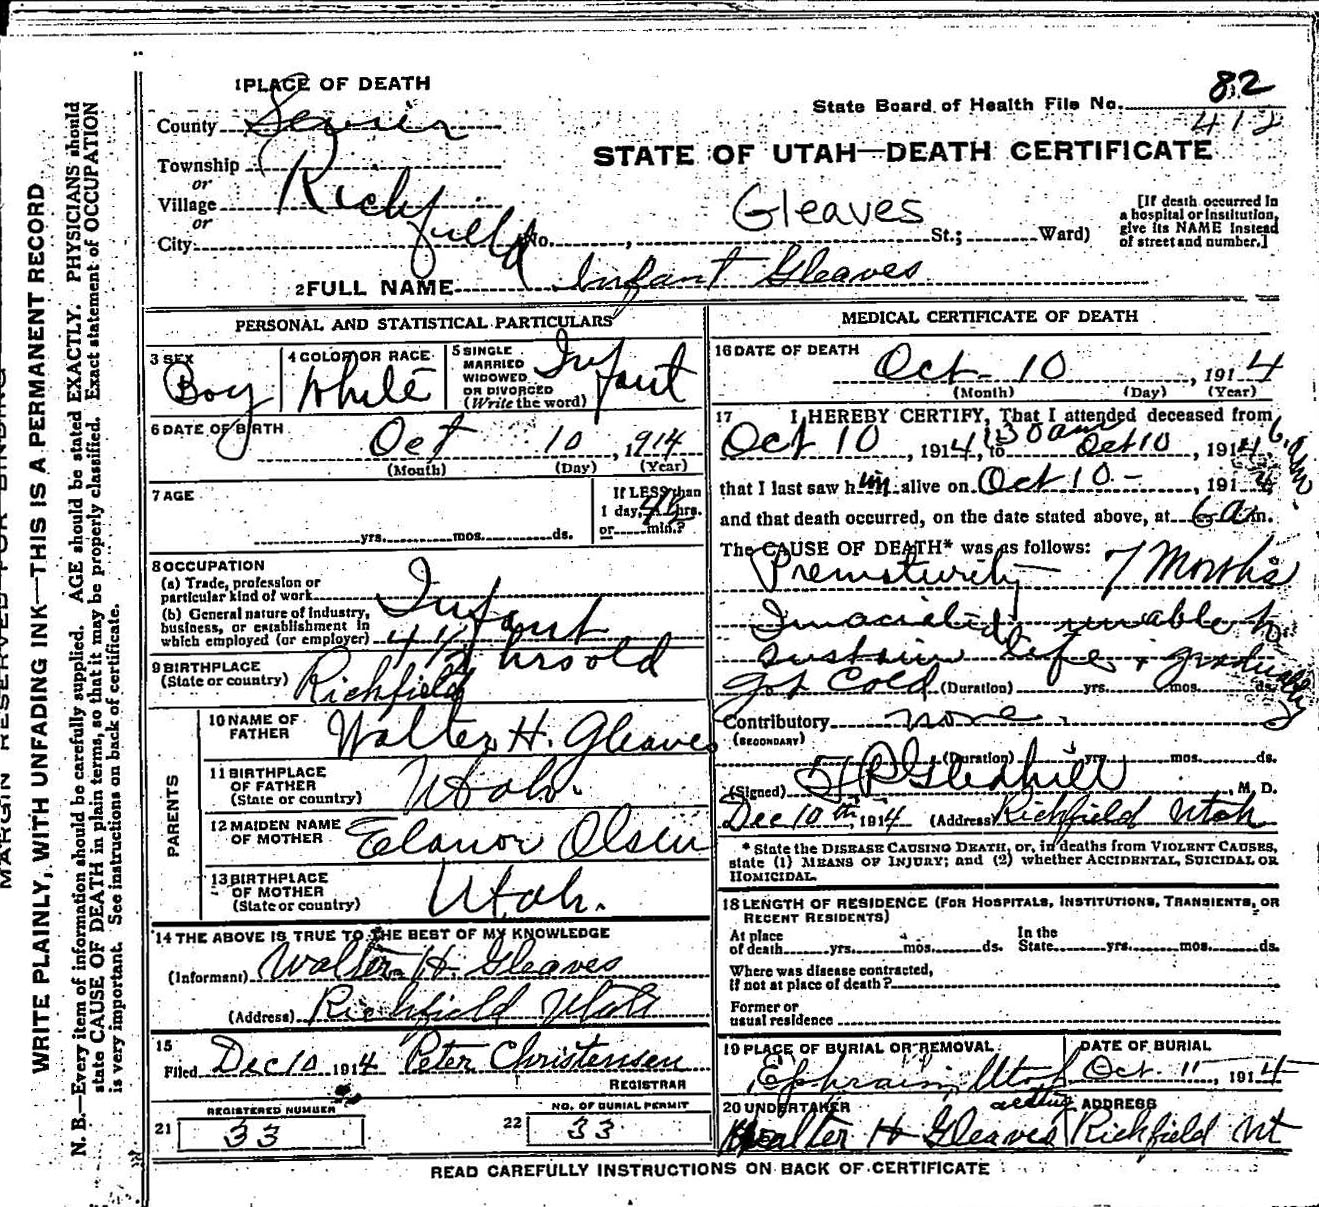 MARGIN RESERVED FOR BINDING
WRITE PLAINLY, WITH UNFADING INK—THIS IS A PERMANENT RECORD
N. B.—Every item of information should be carefully supplied. AGE should be stated EXACTLY. PHYSICIANS should
state CAUSE OF DEATH in plain terms, so that it may be properly classified. Exact statement of OCCUPATION
is very important. See instructions on back of certificate.
1 PLACE OF DEATH
82
State Board of Health File No.
412
County Sevier
STATE OF UTAH—DEATH CERTIFICATE
Township
or
Village Richfield
or
City
Gleaves
No. , St.; Ward)
[If death occurred in
a hospital or institution,
give its NAME instead
of street and number.]
2 FULL NAME Infant Gleaves
PERSONAL AND STATISTICAL PARTICULARS
3 SEX Boy
4 COLOR OR RACE White
5 SINGLE
MARRIED
WIDOWED
OR DIVORCED
(Write the word) Infant
6 DATE OF BIRTH
Oct 10, 1914
(Month) (Day) (Year)
7 AGE
yrs. mos. ds.
If LESS than
1 day, 4½ hrs.
or min.?
8 OCCUPATION
(a) Trade, profession or
particular kind of work Infant
(b) General nature of industry,
business, or establishment in
which employed (or employer) 4 1/2 hrs old
9 BIRTHPLACE
(State or country) Richfield
PARENTS
10 NAME OF
FATHER Walter H. Gleaves
11 BIRTHPLACE
OF FATHER
(State or country) Utah.
12 MAIDEN NAME
OF MOTHER Elanor Olsen
13 BIRTHPLACE
OF MOTHER
(State or country) Utah.
14 THE ABOVE IS TRUE TO THE BEST OF MY KNOWLEDGE
(Informant) Walter H Gleaves
(Address) Richfield Utah
15
Filed Dec 10 1914 Peter Christensen
REGISTRAR
21 REGISTERED NUMBER
33
22 NO. OF BURIAL PERMIT
33
MEDICAL CERTIFICATE OF DEATH
16 DATE OF DEATH
Oct - 10, 1914
(Month) (Day) (Year)
17 I HEREBY CERTIFY, That I attended deceased from
Oct 10, 1914, 130 am to Oct 10, 1914 6 am.
that I last saw him alive on Oct 10 -, 1914
and that death occurred, on the date stated above, at 6 a m.
The CAUSE OF DEATH* was as follows:
Prematurity — 7 Months
Imaciated, unable to
sustain life & gradually
got cold (Duration) yrs. mos. ds.
Contributory none.
(SECONDARY)
(Duration) yrs. mos. ds.
(Signed) Gledhill, M. D.
Dec 10th, 1914 (Address) Richfield Utah
* State the DISEASE CAUSING DEATH, or, in deaths from VIOLENT CAUSES,
state (1) MEANS OF INJURY; and (2) whether ACCIDENTAL, SUICIDAL OR
HOMICIDAL.
18 LENGTH OF RESIDENCE (FOR HOSPITALS, INSTITUTIONS, TRANSIENTS, OR
RECENT RESIDENTS)
At place In the
of death yrs. mos. ds. State yrs. mos. ds.
Where was disease contracted,
if not at place of death?
Former or
usual residence
19 PLACE OF BURIAL OR REMOVAL
Ephraim, Utah
DATE OF BURIAL
Oct 11, 1914
20 UNDERTAKER acting
Walter H Gleaves
ADDRESS
Richfield Ut
READ CAREFULLY INSTRUCTIONS ON BACK OF CERTIFICATE